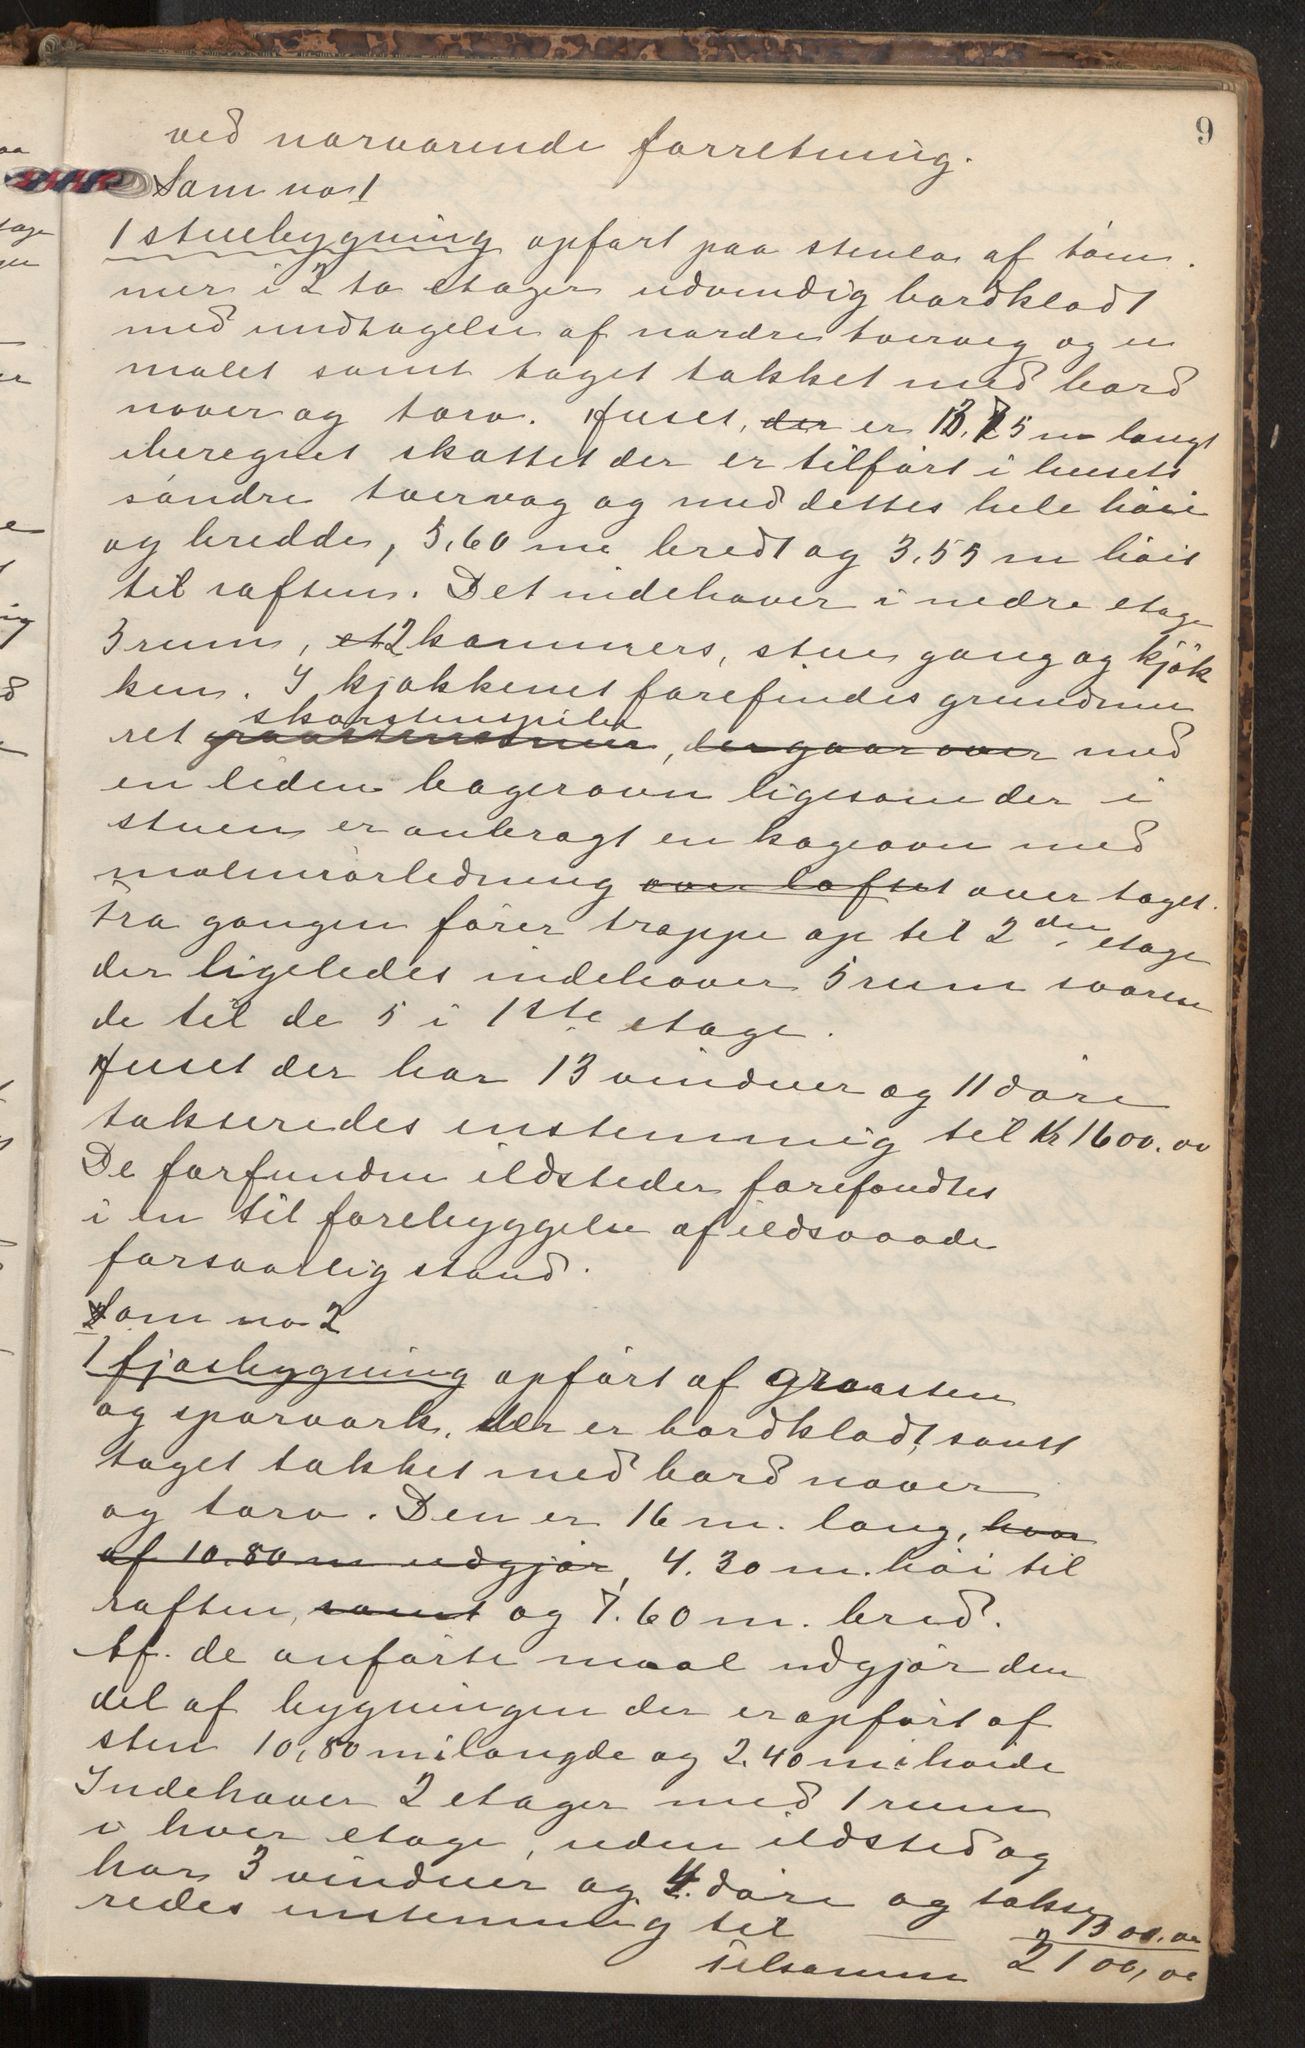 9
ved nærværende forretning.
Som no 1
1 stuebygning opført paa stenla af tøm-
mer i 2 to etager udvendig bordklædt
med undtagelse af nordre tværvæg og u
malet samt taget tækket med bord
næver og torv. Huset, der er 13.75 m langt
iberegnet skottet der er tilført i husets
søndre tværvæg og med dettes hele høie
og bredde, 5,60 m bredt og 3.55 m høit
til raften. Det indehaver i nedre etage
5 rum, et 2 kammers, stue gang og kjøk
ken. I kjøkkenet forefindes grundmu
skorstenspibe
ret graastensmur, der gaar over med
en liden bagerovn ligesom der i
stuen er anbragt en kogeovn med
malmrørledning over loftet over taget.
Fra gangen fører trappe op til 2den etage
der ligeledes indehaver 5 rum svaren
de til de 5 i 1ste etage.
Huset der har 13 vinduer og 11 døre
takseredes enstemmig til Kr 1600.00
De forfundne ildsteder forefandtes
i en til forebyggelse af ildsvaade
forsvarlig stand.
Som no 2
1 fjøsbygning opført af graasten
og sparværk, der er bordklædt samt
taget tækket med bord næver
og torv. Den er 16 m. lang, hvor
af 10.80 m udgjør, 4.30 m. høi til
raften, samt og 7.60 m. bred.
Af de anførte maal udgjør den
del af bygningen der er opført af
sten 10,80 m i længde og 2.40 m i høide
Indehaver 2 etager med 1 rum
i hver etage, uden ildsted og
har 3 vinduer og 4 døre og takse
redes enstemmig til 500.00
Tilsammen 2100,00